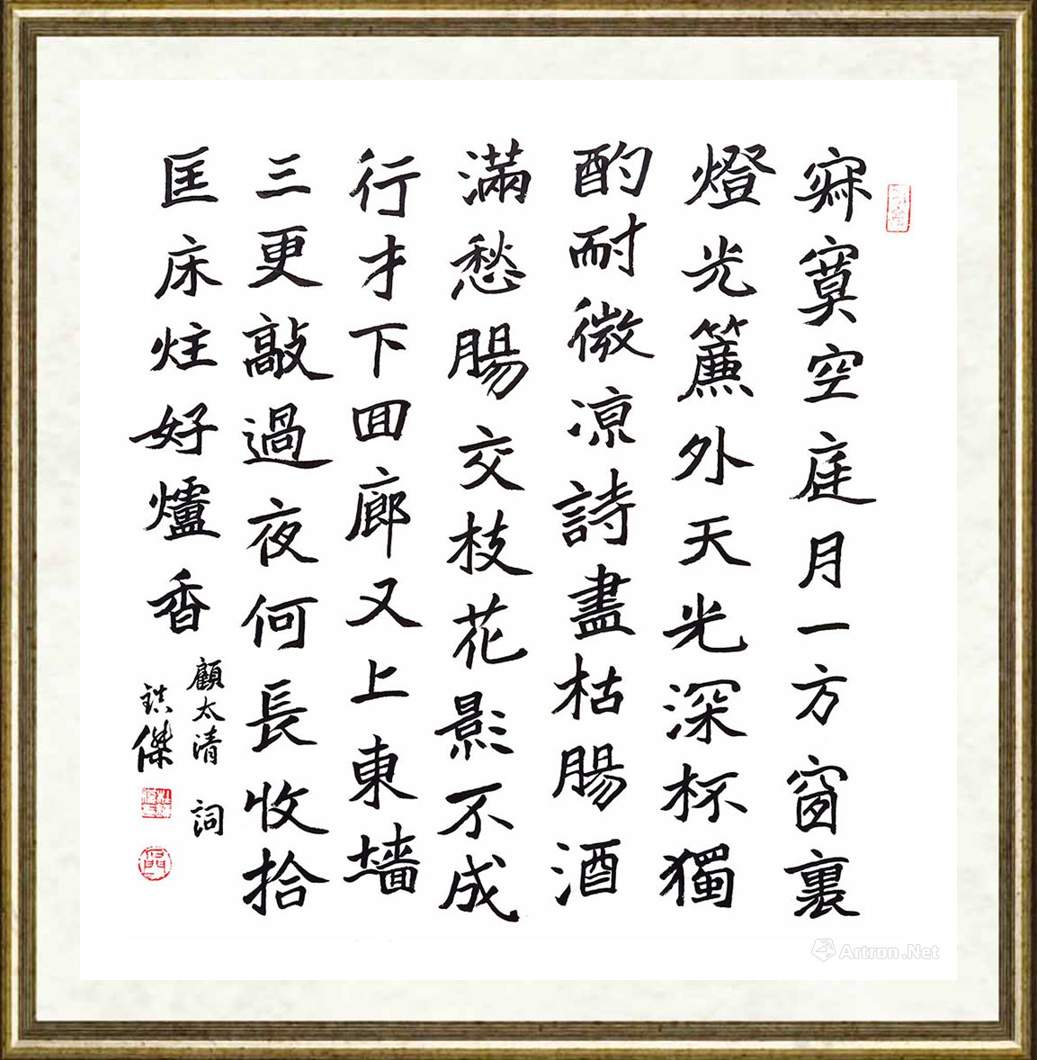 寂寞空庭月一方窗裏
燈光簾外天光深杯獨
酌耐微凉詩盡枯腸酒
滿愁腸交枝花影不成
行才下回廊又上東墻
三更敲過夜何長收拾
匡床炷好爐香
顧太清 詞
鉄傑
Artron.Net